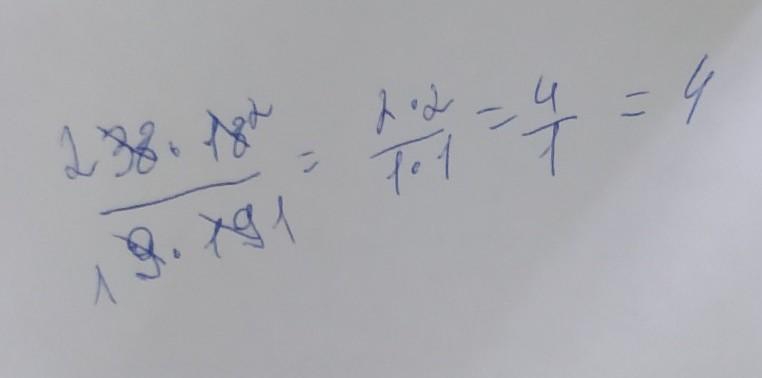 2 38 · 18 2 / 1 9 · 19 1 = 2·2 / 1·1 = 4/1 = 4